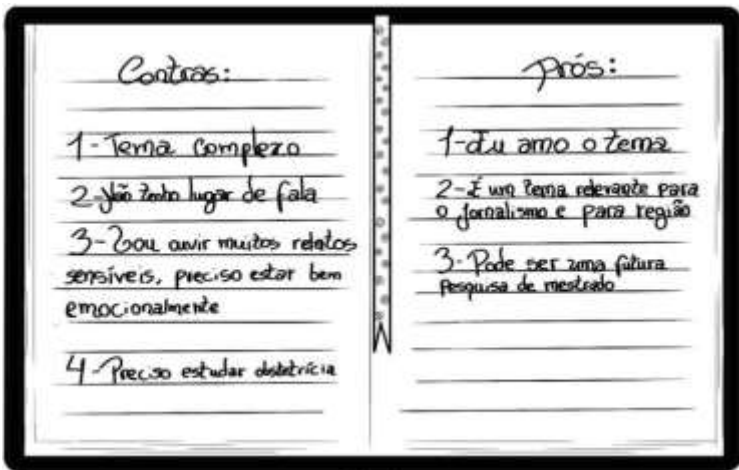 Contras:
1-Tema complexo
2-Não tenho lugar de fala
3-Vou ouvir muitos relatos
sensíveis, preciso estar bem
emocionalmente
4-Preciso estudar obstetrícia
Prós:
1-Eu amo o tema
2-É um tema relevante para
o jornalismo e para região
3-Pode ser uma futura
Pesquisa de mestrado